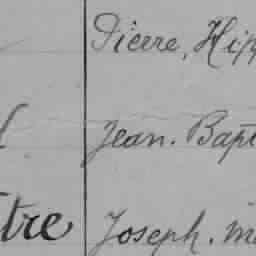 Pierre, Hipp
Jean. Bapt
tre Joseph. Ma